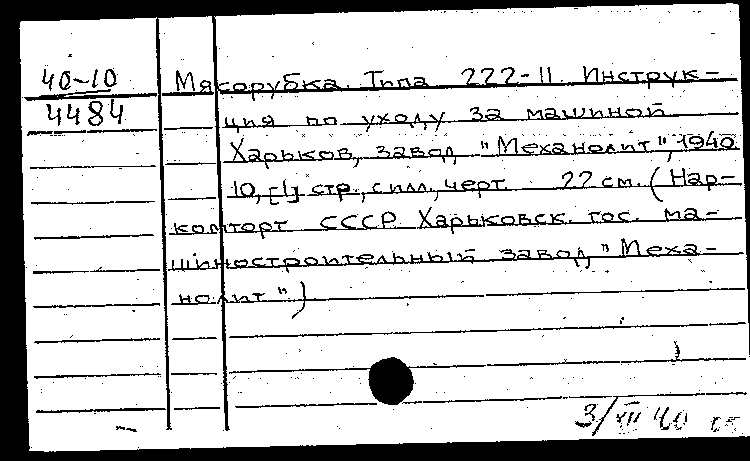 40-10
4484
Мясорубка. Типа 222-II. Инструк-
ция по уходу за машиной.
Харьков, завод "Механолит", 1940
10, [1] стр., с илл., черт. 22 см. (Нар-
комторг СССР. Харьковск. гос. ма-
шиностроительный завод "Меха-
нолит")
3/XII 40